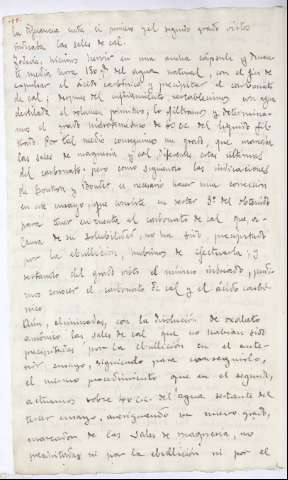 la diferencia entre el primero y el segundo grado visto
indicaba las sales de cal.
Todavía, hicimos hervir en una ancha cápsula y durante
media hora 150 del agua natural, con el fin de
expulsar el ácido carbónico y precipitar el carbonato
de cal; después del enfriamiento restablecimos con agua
destilada el volumen primitivo; lo filtramos y determina-
mos el grado hidrotimétrico de 40 c.c. del líquido fil-
trado. Por tal medio conseguimos un grado, que marcaba
las sales de magnesia y cal, diferentes estas últimas
del carbonato; pero como siguiendo las indicaciones
de Boutron y Boudet es necesario hacer una corrección
en este ensayo, que consiste en restar 3º del obtenido
para tener en cuenta el carbonato de cal que, a
causa de su solubilidad, no ha sido precipitado
por la ebullición, hubimos de efectuarla; y
restando del grado visto el número indicado, pudi-
mos conocer el carbonato de cal y el ácido carbó-
nico.
Aún, eliminadas, con la disolución de oxalato
amónico las sales de cal que no habían sido
precipitadas por la ebullición en el ante-
rior ensayo, siguiendo para conseguirlo,
el mismo procedimiento que en el segundo,
actuamos sobre 40 c.c. del agua restante del
tercer ensayo, averiguando un nuevo grado,
marcación de las sales de magnesia, no
precipitadas ni por la ebullición ni por el